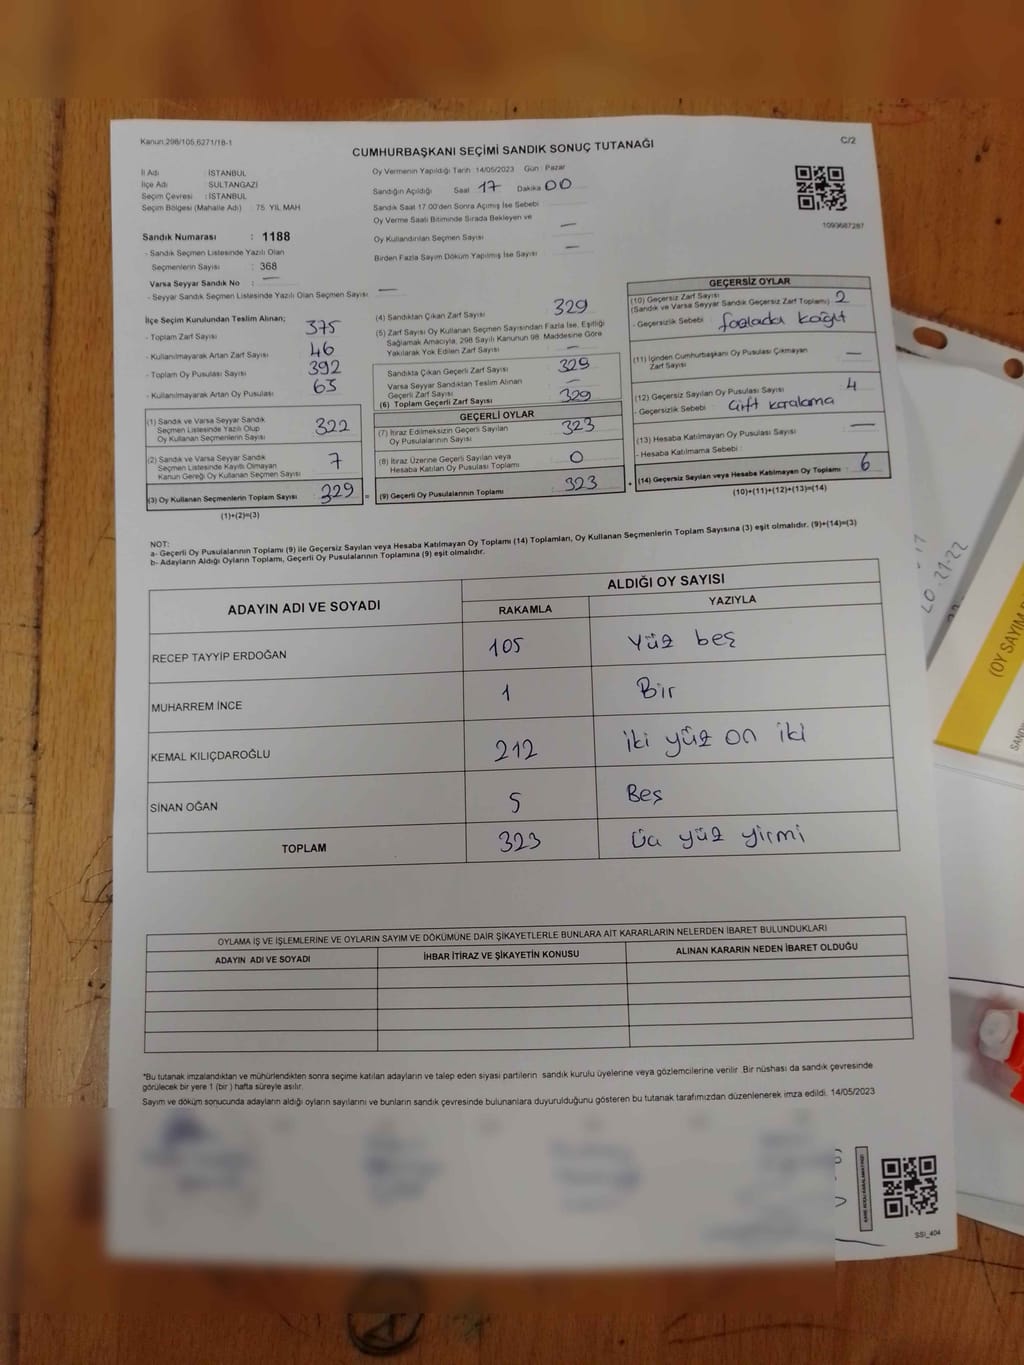 Kanun:298/105,6271/18-1
C/2
CUMHURBAŞKANI SEÇİMİ SANDIK SONUÇ TUTANAĞI
İl Adı : İSTANBUL
İlçe Adı : SULTANGAZİ
Seçim Çevresi : İSTANBUL
Seçim Bölgesi (Mahalle Adı) : 75. YIL MAH
Sandık Numarası : 1188
- Sandık Seçmen Listesinde Yazılı Olan
Seçmenlerin Sayısı : 368
Varsa Seyyar Sandık No : —
- Seyyar Sandık Seçmen Listesinde Yazılı Olan Seçmen Sayısı : —
Oy Vermenin Yapıldığı Tarih 14/05/2023 Gün : Pazar
Sandığın Açıldığı Saat 17 Dakika 00
Sandık Saat 17.00'den Sonra Açılmış İse Sebebi
Oy Verme Saati Bitiminde Sırada Bekleyen ve
Oy Kullandırılan Seçmen Sayısı —
Birden Fazla Sayım Döküm Yapılmış İse Sayısı —
1093687287
İlçe Seçim Kurulundan Teslim Alınan;
- Toplam Zarf Sayısı : 375
- Kullanılmayarak Artan Zarf Sayısı : 46
- Toplam Oy Pusulası Sayısı : 392
- Kullanılmayarak Artan Oy Pusulası : 63
(1) Sandık ve Varsa Seyyar Sandık
Seçmen Listesinde Yazılı Olup
Oy Kullanan Seçmenlerin Sayısı : 322
(2) Sandık ve Varsa Seyyar Sandık
Seçmen Listesinde Kayıtlı Olmayan
Kanun Gereği Oy Kullanan Seçmen Sayısı : 7
(3) Oy Kullanan Seçmenlerin Toplam Sayısı : 329
(1)+(2)=(3)
(4) Sandıktan Çıkan Zarf Sayısı 329
(5) Zarf Sayısı Oy Kullanan Seçmen Sayısından Fazla İse, Eşitliği
Sağlamak Amacıyla, 298 Sayılı Kanunun 98. Maddesine Göre
Yakılarak Yok Edilen Zarf Sayısı : —
Sandıkta Çıkan Geçerli Zarf Sayısı : 329
Varsa Seyyar Sandıktan Teslim Alınan
Geçerli Zarf Sayısı : —
(6) Toplam Geçerli Zarf Sayısı : 329
GEÇERLİ OYLAR
(7) İtiraz Edilmeksizin Geçerli Sayılan
Oy Pusulalarının Sayısı : 323
(8) İtiraz Üzerine Geçerli Sayılan veya
Hesaba Katılan Oy Pusulası Toplamı : 0
= (9) Geçerli Oy Pusulalarının Toplamı : 323
GEÇERSİZ OYLAR
(10) Geçersiz Zarf Sayısı
(Sandık ve Varsa Seyyar Sandık Geçersiz Zarf Toplamı) : 2
- Geçersizlik Sebebi : fazlada kağıt
(11) İçinden Cumhurbaşkanı Oy Pusulası Çıkmayan
Zarf Sayısı : —
(12) Geçersiz Sayılan Oy Pusulası Sayısı : 4
- Geçersizlik Sebebi : Çift karalama
(13) Hesaba Katılmayan Oy Pusulası Sayısı : —
- Hesaba Katılmama Sebebi :
+ (14) Geçersiz Sayılan veya Hesaba Katılmayan Oy Toplamı : 6
(10)+(11)+(12)+(13)=(14)
NOT:
a- Geçerli Oy Pusulalarının Toplamı (9) ile Geçersiz Sayılan veya Hesaba Katılmayan Oy Toplamı (14) Toplamları, Oy Kullanan Seçmenlerin Toplam Sayısına (3) eşit olmalıdır. (9)+(14)=(3)
b- Adayların Aldığı Oyların Toplamı, Geçerli Oy Pusulalarının Toplamına (9) eşit olmalıdır.
ADAYIN ADI VE SOYADI
ALDIĞI OY SAYISI
RAKAMLA YAZIYLA
RECEP TAYYİP ERDOĞAN 105 Yüz beş
MUHARREM İNCE 1 Bir
KEMAL KILIÇDAROĞLU 212 iki yüz on iki
SİNAN OĞAN 5 Beş
TOPLAM 323 Üç yüz yirmi
OYLAMA İŞ VE İŞLEMLERİNE VE OYLARIN SAYIM VE DÖKÜMÜNE DAİR ŞİKAYETLERLE BUNLARA AİT KARARLARIN NELERDEN İBARET BULUNDUKLARI
ADAYIN ADI VE SOYADI İHBAR İTİRAZ VE ŞİKAYETİN KONUSU ALINAN KARARIN NEDEN İBARET OLDUĞU
*Bu tutanak imzalandıktan ve mühürlendikten sonra seçime katılan adayların ve talep eden siyasi partilerin sandık kurulu üyelerine veya gözlemcilerine verilir. Bir nüshası da sandık çevresinde
görülecek bir yere 1 (bir) hafta süreyle asılır.
Sayım ve döküm sonucunda adayların aldığı oyların sayılarını ve bunların sandık çevresinde bulunanlara duyurulduğunu gösteren bu tutanak tarafımızdan düzenlenerek imza edildi. 14/05/2023
SSI_404
20-21-22
(OY SAYIM